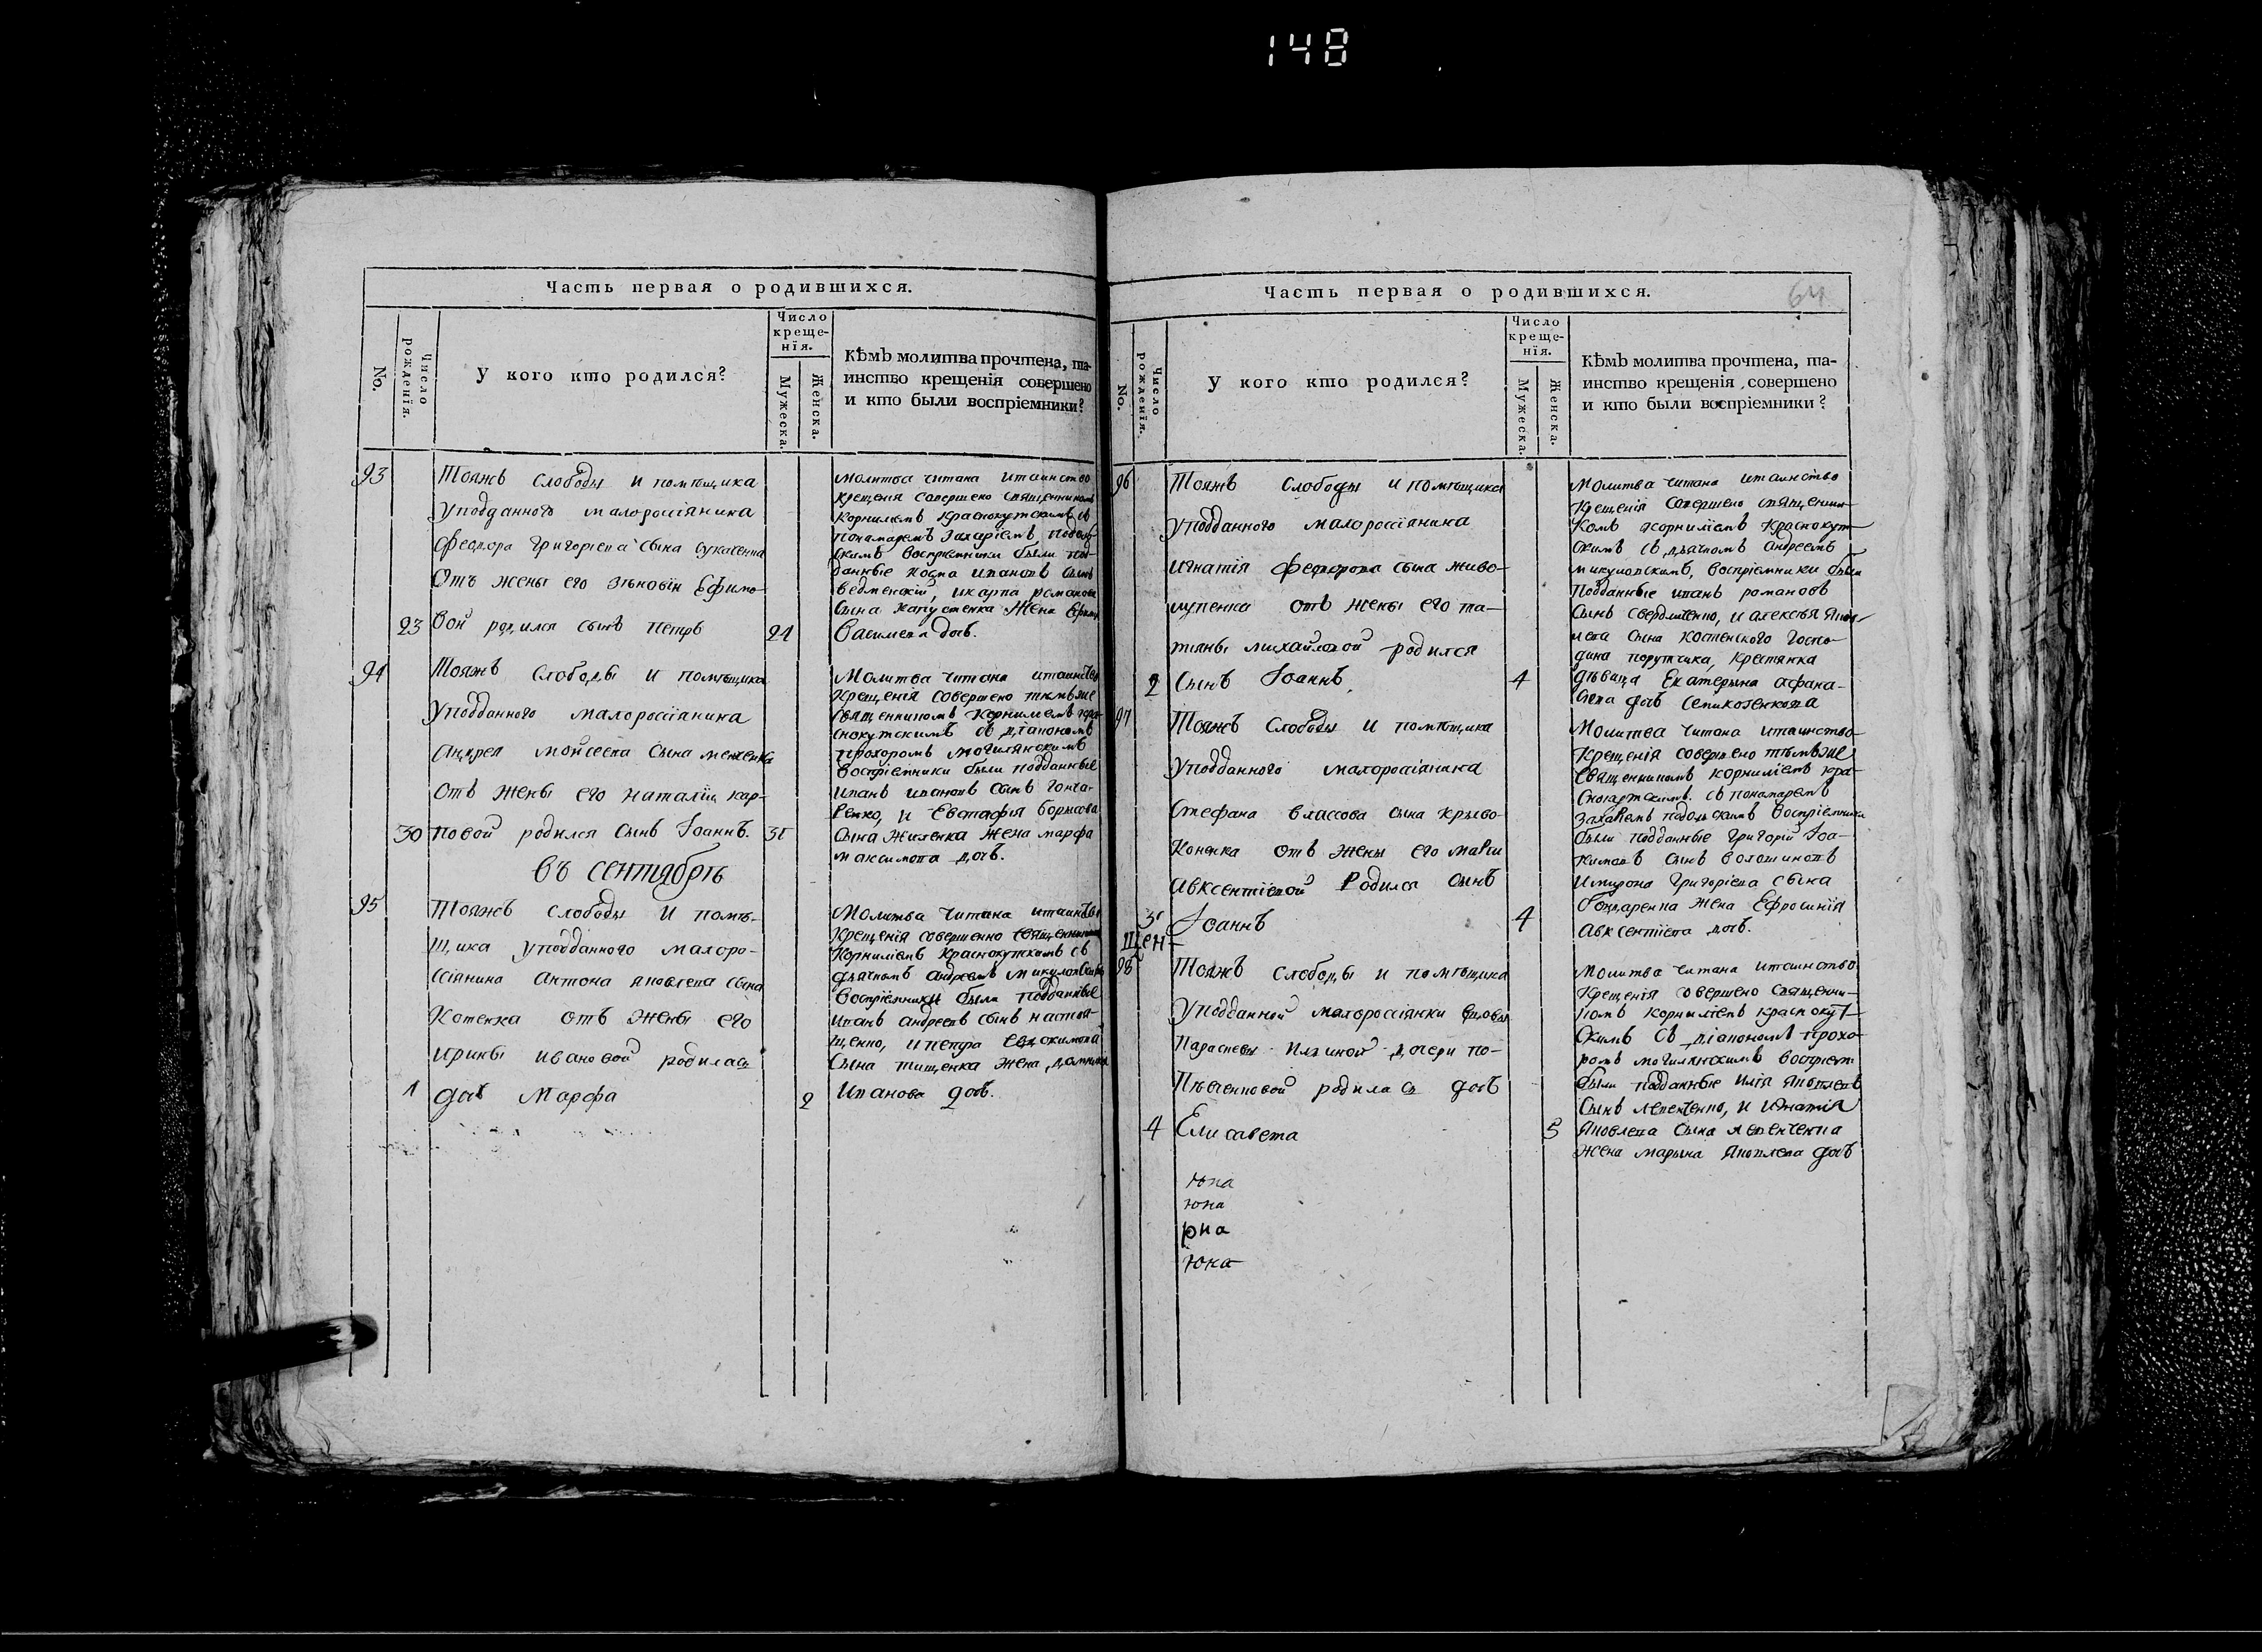 148
Часть первая о родившихся.
No.
Число рожденїя.
У кого кто родился?
Число
креще-
нїя.
Мужеска.
Женска.
Кѣмъ молитва прочтена, та-
инство крещенія совершено
и кто были воспріемники?
93
Тояжъ слободы и помѣщика
уподданного малороссіянина
Феодора Григоріева сына
Отъ жены его Зѣновіи Ефимо-
23 вой родился сынъ Петръ 24
Молитва читана итаинство
крещенія совершено священникомъ
Корниліемъ Краснокутскимъ съ
понамаремъ Захаріемъ Подоль-
скимъ воспріемники были под-
данные Косма Ивановъ сынъ
Ведменскій, икарпа романова
сына капустенка жена
Василева дочь.
94
Тояжъ слободы и помѣщика
уподданного малороссіянина
Андрея мойсеева сына
Отъ жены его наталіи кар-
30 повой родился сынъ Іоаннъ. 31
Молитва читана итаинство
крещенія совершено тѣмъже
священникомъ Корниліемъ кра-
снокутскимъ съ діакономъ
Прохоромъ могилянскимъ
воспріемники были подданные
иванъ ивановъ сынъ гонча-
ренко, и Евстафія борисова
сына жиленка жена марфа
максимова дочь.
въ сентябрѣ
95
Тояжъ слободы и помѣ-
щика уподданного малоро-
ссіянина Антона яковлева сына
Котенка отъ жены его
ирины ивановой родилась
1 дочь Марфа 2
Молитва читана итаинство
крещенія совершенно священникомъ
Корниліемъ Краснокутскимъ съ
дьячкомъ андреемъ микуловскимъ
воспріемники были подданные
иванъ андреевъ сынъ
щенко, ипетра евдокимова
сына тищенка жена
иванова дочь.
Часть первая о родившихся.
64
No.
Число рожденїя.
У кого кто родился?
Число
креще-
нїя.
Мужеска.
Женска.
Кѣмъ молитва прочтена, та-
инство крещенія совершено
и кто были воспріемники?
96
Тояжъ слободы и помѣщика
уподданного малороссіянина
игнатія федорова сына живо-
лупенка отъ жены его та-
тіяны михайловой родился
2 сынъ Іоаннъ, 4
Молитва читана итаинство
крещенія совершено священни-
комъ корниліемъ краснокут-
скимъ съ дьячкомъ андреемъ
микуловскимъ, воспріемники были
подданные иванъ романовъ
сынъ свердличенко, и алексѣя яков-
лева сына костенского госпо-
дина порутчика, крестянка
дѣвица Екатерына афана-
сіева дочь семикозенкова
97
Тояжъ слободы и помѣщика
уподданного малороссіянина
Стефана власова сына крыво-
коненка отъ жены его маріи
авксентіевой родился сынъ
3 Іоаннъ 4
Молитва читана итаинство
крещенія совершено тѣмъже
священникомъ корниліемъ кра-
снокутскимъ съ понамаремъ
захаріемъ подольскимъ воспріемники
были подданные григорій Іоа-
кимовъ сынъ волошиновъ
имирона григоріева сына
гончаренка жена Ефросинія
авксентіева дочь.
98
Тояжъ слободы и помѣщика
уподданной малороссіянки вдовы
Параскевы Илїиной дочери по-
пѣвченковой родилась дочь
4 Елисавета 5
Молитва читана итаинство
крещенія совершено священни-
комъ корниліемъ краснокут-
скимъ съ діакономъ прохо-
ромъ могилянскимъ воспріем
были подданные илія яковлевъ
сынъ левченко, и игнатія
яковлева сына левченка
жена марына яковлева дочь
юка
юка
рка
юка